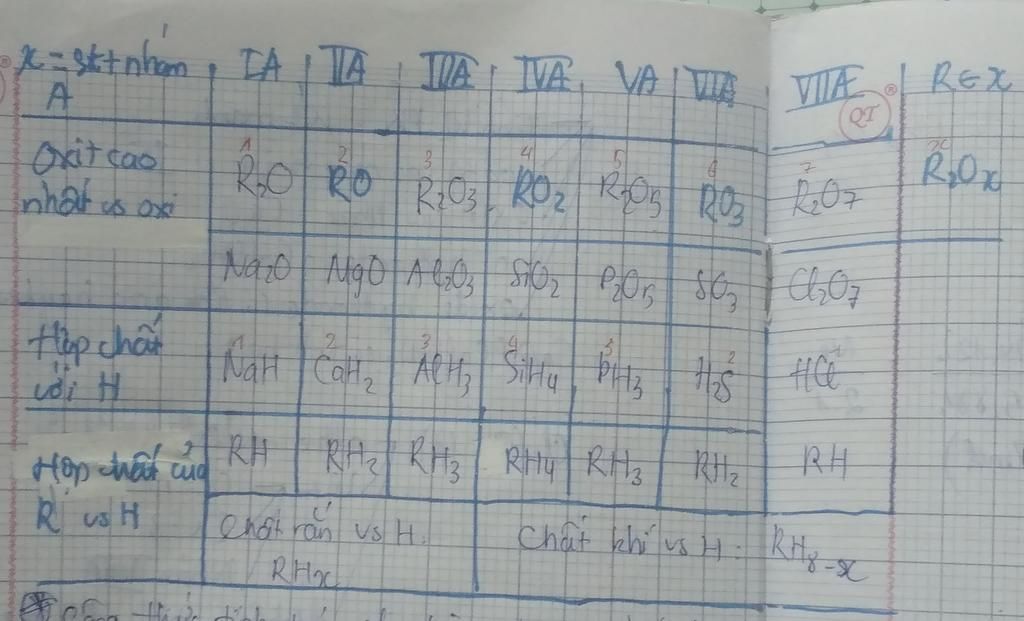 x = stt nhóm A | IA | IIA | IIIA | IVA | VA | VIA | VIIA | R ∈ x
QT
1 2 3 4 5 6 7 x
Oxit cao nhất vs oxi | R2O | RO | R2O3 | RO2 | R2O5 | RO3 | R2O7 | R2Ox
Na2O | MgO | Al2O3 | SiO2 | P2O5 | SO3 | Cl2O7
1 2 3 4 3 2 1
Hợp chất với H | NaH | CaH2 | AlH3 | SiH4 | PH3 | H2S | HCl
Hợp chất của R vs H | RH | RH2 | RH3 | RH4 | RH3 | RH2 | RH
Chất rắn vs H. | Chất khí vs H: RH8-x
RHx